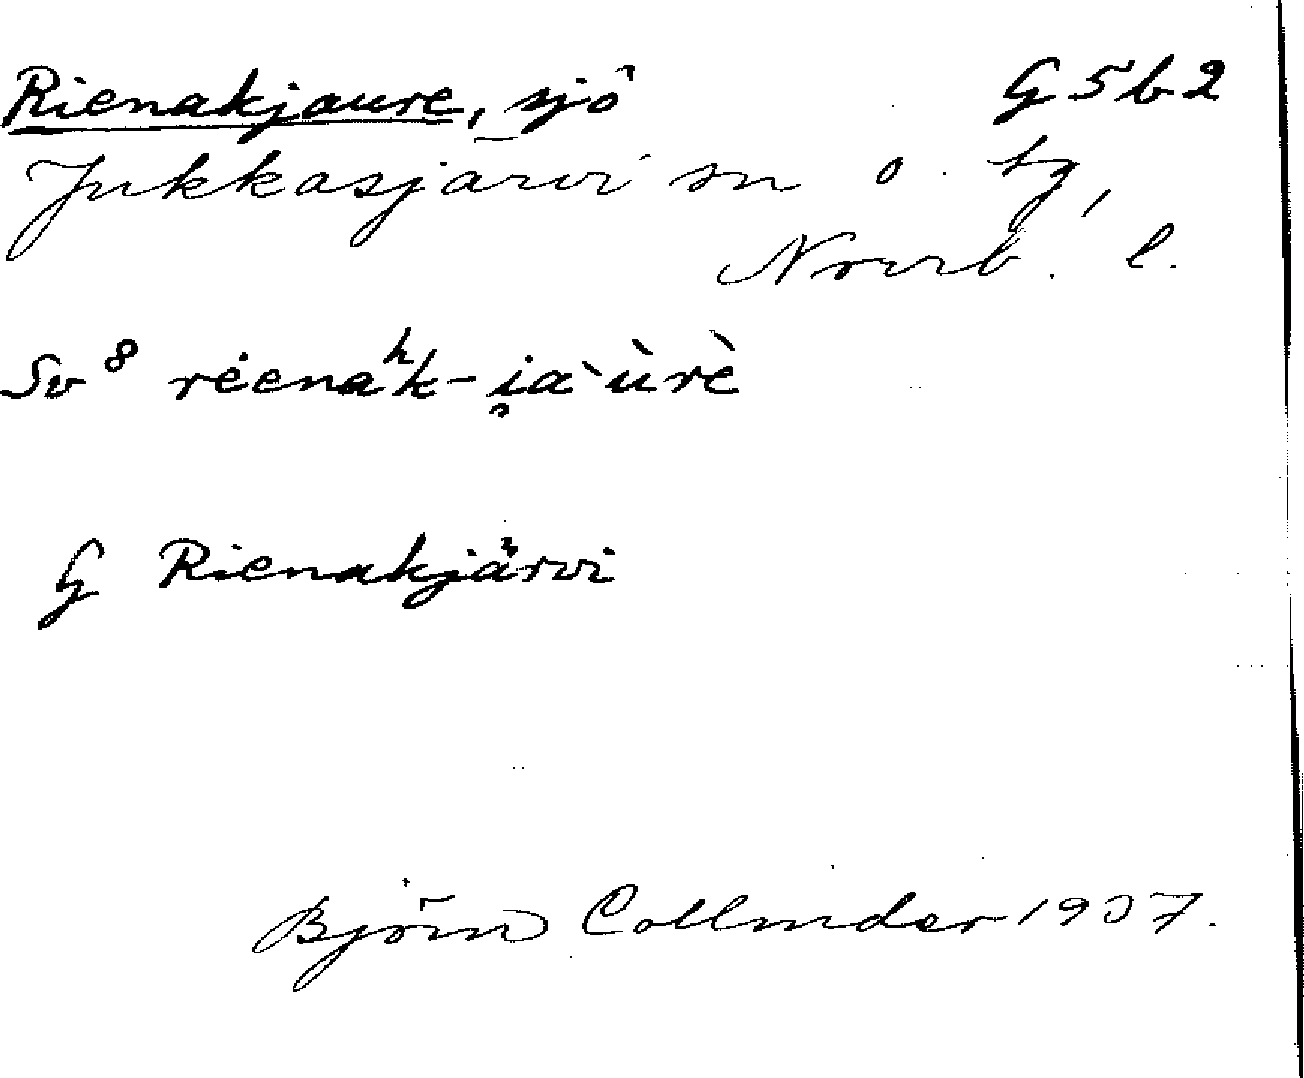 Rienakjaure, sjö G5b2
Jukkasjärvi sn o. tg,
Norrb. l.
Sv⁸ réenaʰk-i̯aˋùrè
G Rienakjärvi
Björn Collinder 1937.